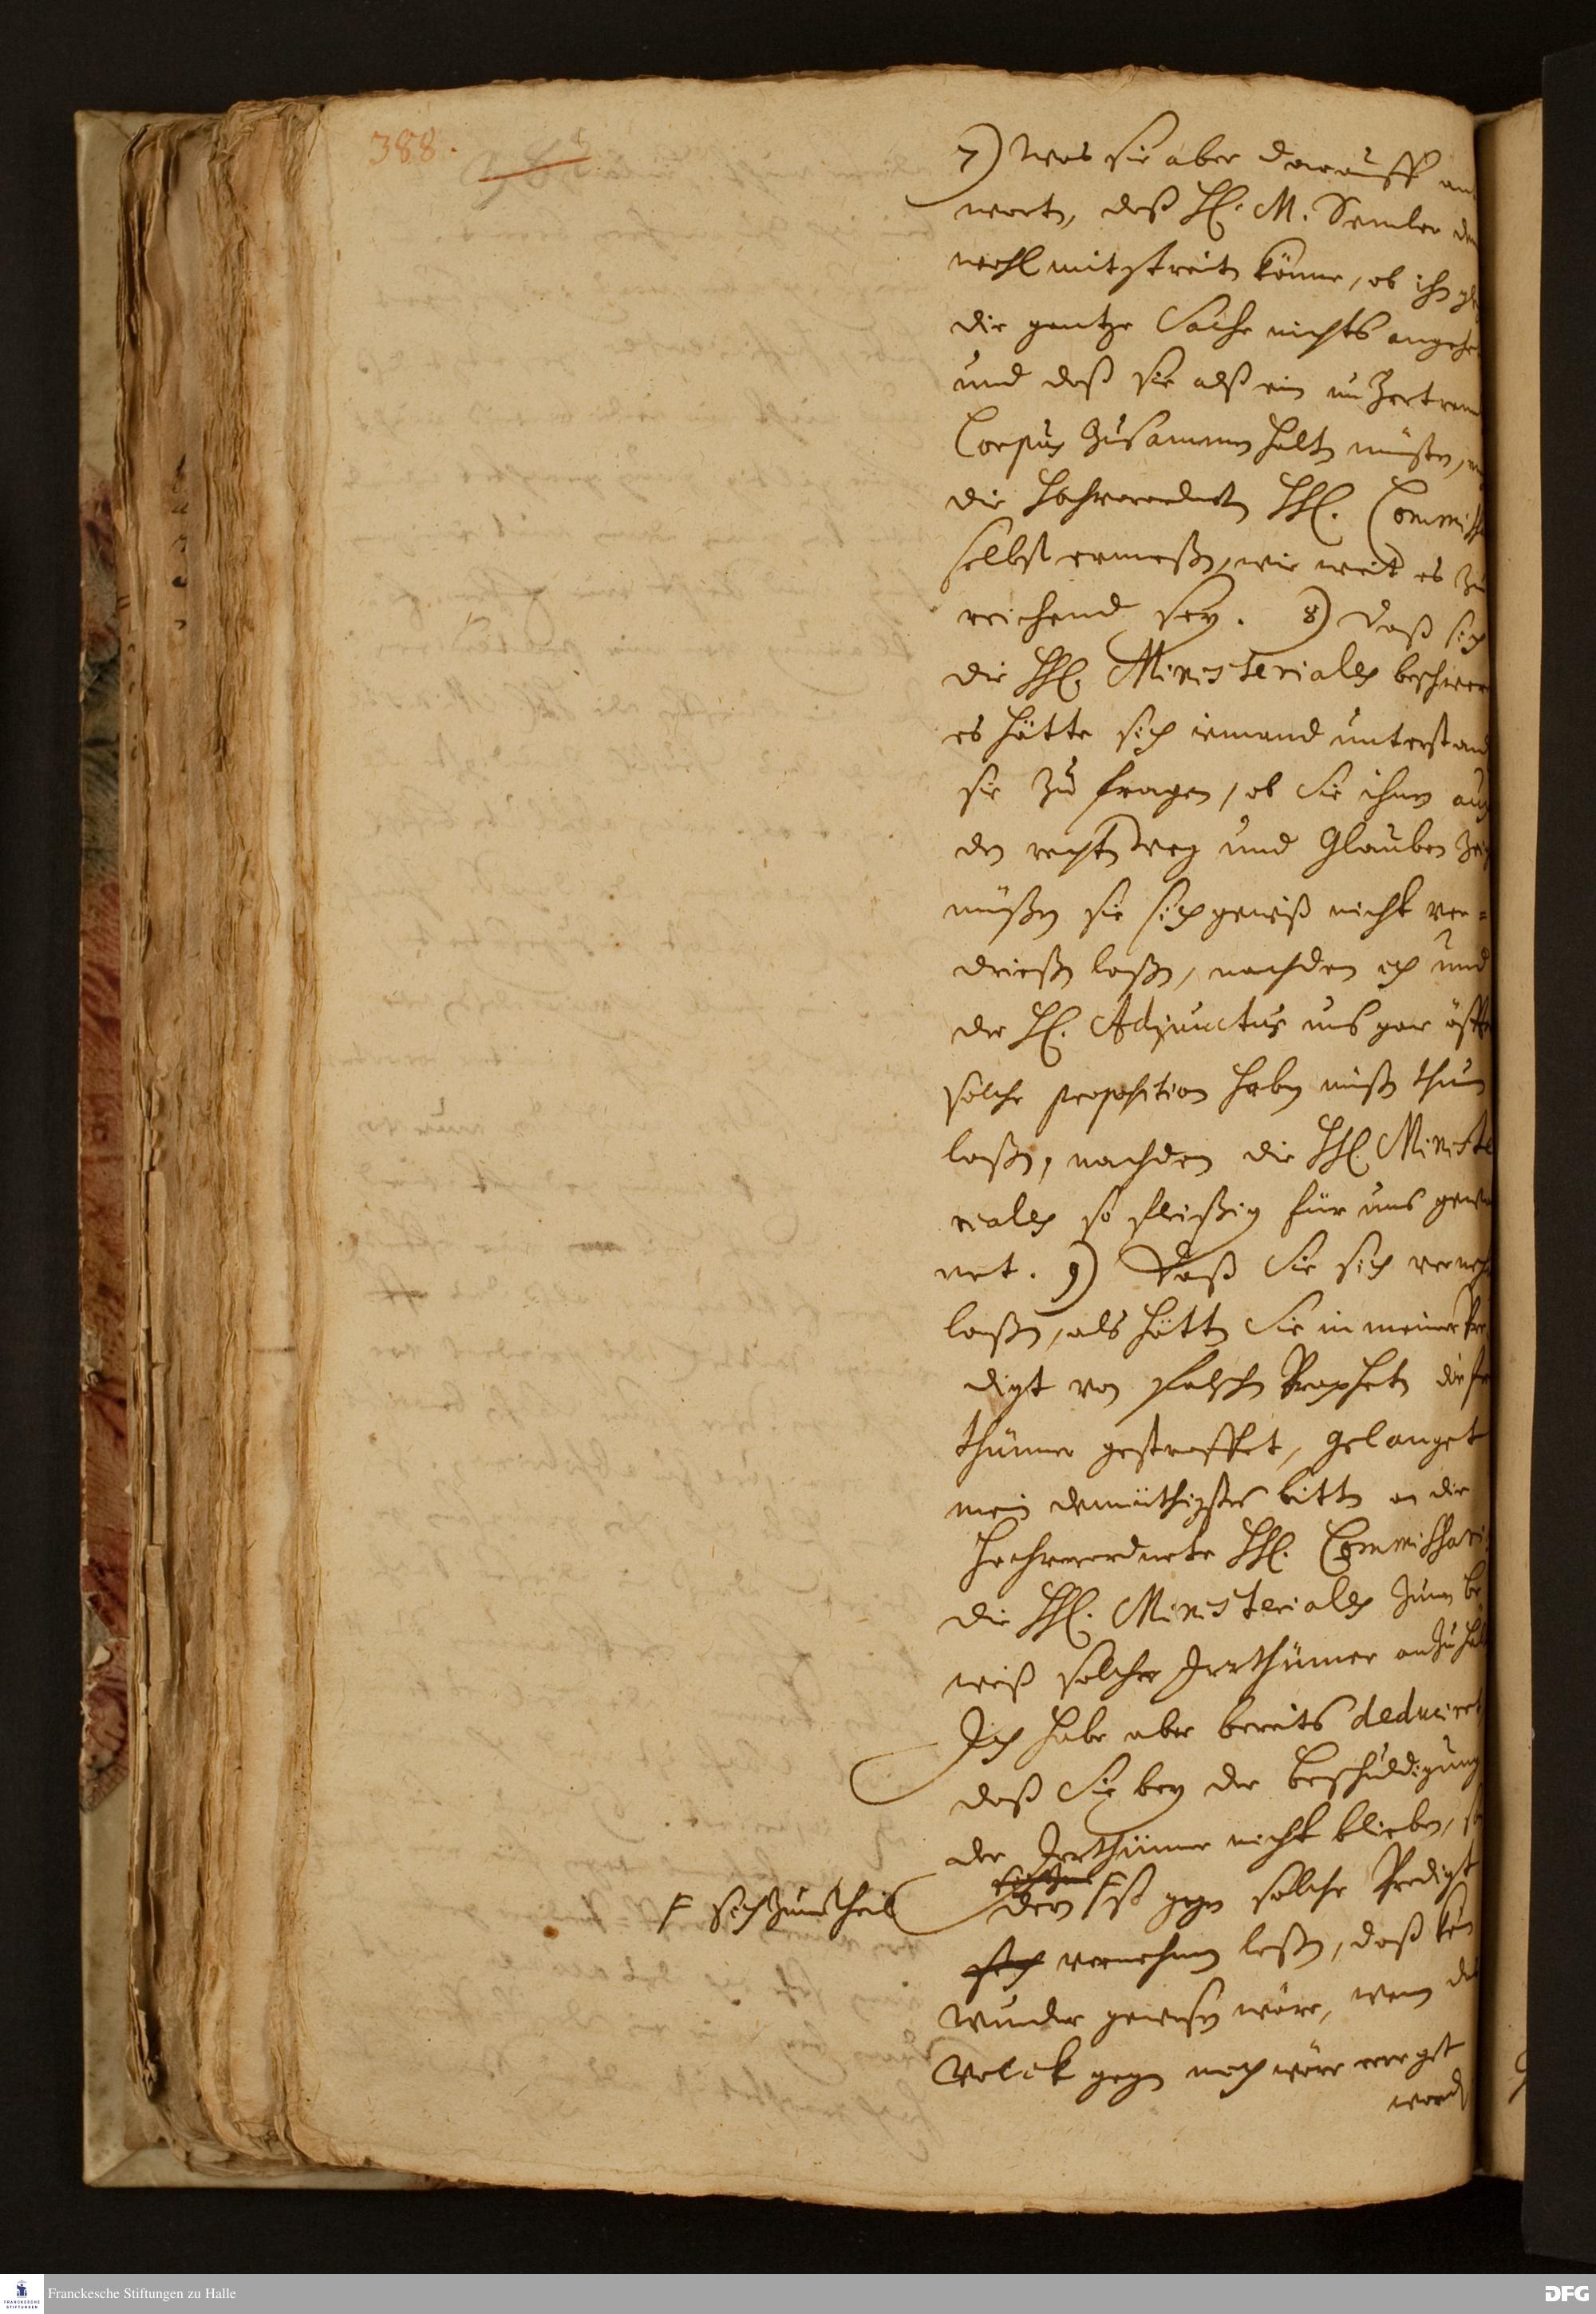 388.
7) Was sie aber darauff an¬
wort, daß HE. M. Semler
wohl mit streitn könne, ob ihn
die gantze Sache nichts angehe
und daß sie alß ein unzertren
Corpus zusammen haltn müsten,
die Hochverordnetn HHE. Commiss
selbst ermeßn, wie weit es zu
reichend sey. 8) Daß sich
die HHE. Ministeriales beschwer
es hätte sich iemand unterstand
sie zu fragen, ob Sie ihm auch
den rechtn weg und Glauben
müßn sie sich gewiß nicht ver=
drießn laßn, nachdem ich und
der HE. Adjunctus uns gar öffte
solche proposition habn müßn thun
laßn, nachdem die HHE. Ministe
riales so fleißig für uns gewar
net. 9) Daß Sie sich verneh
laßn, als hättn Sie in meiner Pre
digt von falschn Prophetn die Irr
thümer gestraffet, gelanget
mein demüthigstes bittn an die
Hochverordnete HHE. Commissari
die HHE. Ministeriales zum be
weiß solcher Irrthümer anzuhalt
Ich habe aber bereits deduciret
daß Sie bey der Beschuldigung
der Irrthümer nicht blieben, so
dern F so gegen solche Predigt
F sich zum theil
sich vernehmen laßn, daß kein
wunder gewesn wäre, wenn d
Volck gegn mich wäre erreget
word
Franckesche Stiftungen zu Halle
FRANCKESCHE STIFTUNGEN
DFG